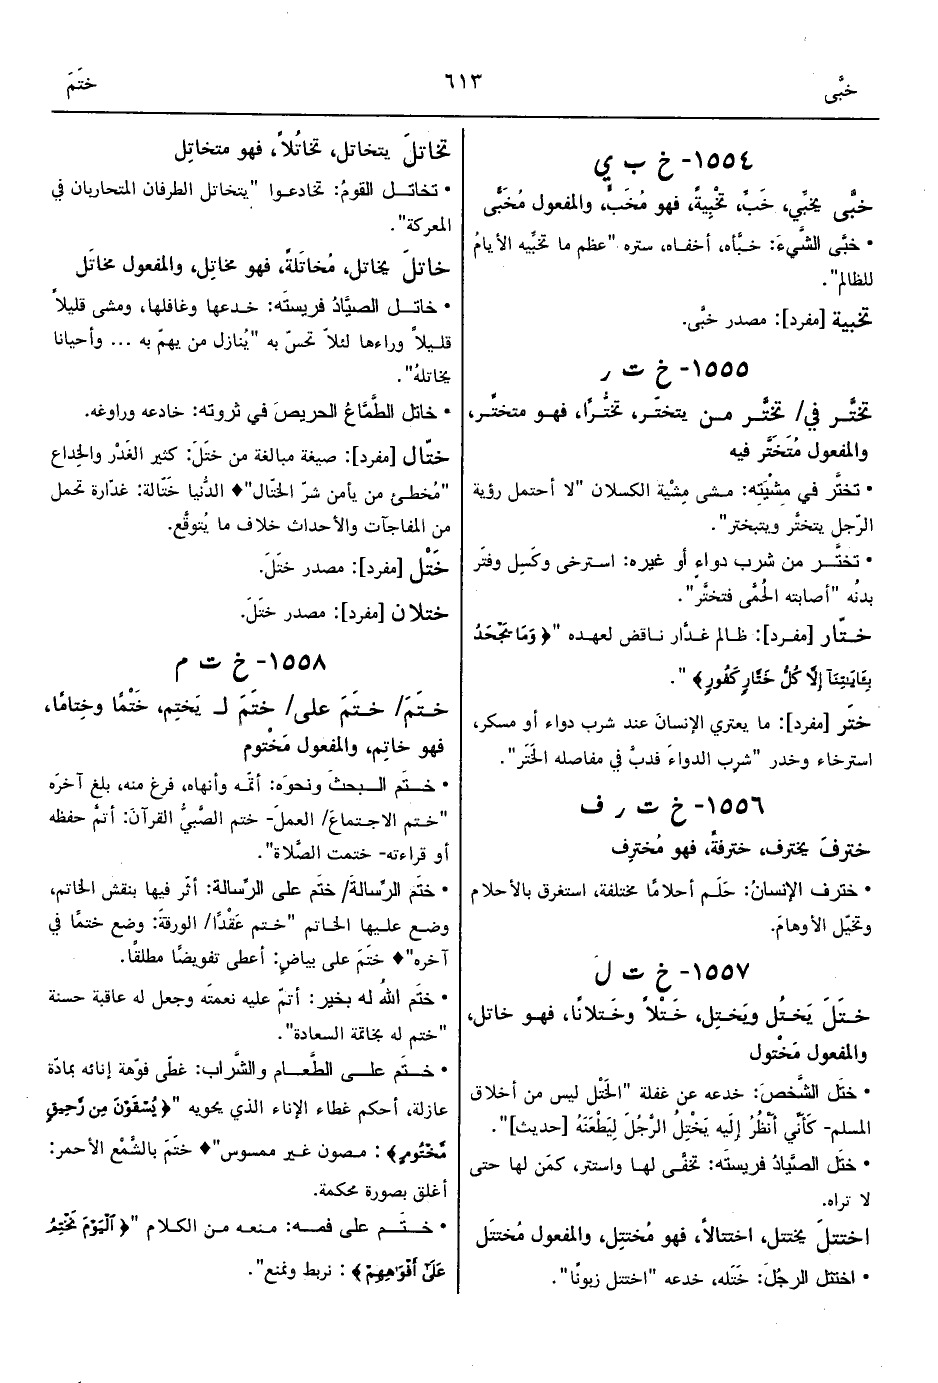 خبَّى
٦١٣
ختَمَ
١٥٥٤- خ ب ي
خبَّى يخبِّي، خَبِّ، تخْبِيةً، فهو مُخَبٍّ، والمفعول مُخَبًّى
• خبَّى الشَّيءَ: خبَّأه، أخفاه، ستره "عظم ما تخبِّيه الأيامُ
للظالم".
تخبية [مفرد]: مصدر خبَّى.
١٥٥٥- خ ت ر
تختَّر في/ تختَّر من يتختّر، تختُّرًا، فهو متختِّر،
والمفعول مُتَختَّر فيه
• تختَّر في مشيْتِه: مشى مِشْية الكسلان "لا أحتمل رؤية
الرّجل يتختَّر ويتبختر".
• تختَّر من شرب دواءٍ أو غيره: استرخى وكَسِل وفتَر
بدنُه "أصابته الحُمَّى فتختَّر".
ختّار [مفرد]: ظالم غدَّار ناقض لعهده "﴿وَمَا يَجْحَدُ
بِـَٔايَٰتِنَآ إِلَّا كُلُّ خَتَّارٍ كَفُورٍ﴾".
ختَر [مفرد]: ما يعتري الإنسانَ عند شرب دواء أو مسكر،
استرخاء وخدر "شرب الدواءَ فدبَّ في مفاصله الختَر".
١٥٥٦- خ ت ر ف
خترفَ يخترف، خترفةً، فهو مُخترِف
• خترف الإنسانُ: حَلَم أحلامًا مختلفة، استغرق بالأحلام
وتخيّل الأوهامَ.
١٥٥٧- خ ت ل
ختَلَ يَختُل ويَختِل، خَتْلاً وخَتلانًا، فهو خاتل،
والمفعول مَخْتول
• ختَل الشَّخصَ: خدعه عن غفلة "الخَتْل ليس من أخلاق
المسلم- كَأَنِّي أَنْظُرُ إِلَيه يَخْتِلُ الرَّجُلَ لِيَطْعَنَهُ [حديث]".
• ختَل الصيَّادُ فريستَه: تخفَّى لها واستتر، كمَن لها حتى
لا تراه.
اختتلَ يختتل، اختتالاً، فهو مُختتِل، والمفعول مُختتَل
• اختتل الرجُلَ: خَتَله، خدعه "اختتل زبونًا".
تخاتلَ يتخاتل، تخاتُلاً، فهو متخاتِل
• تخاتل القومُ: تخادعوا "يتخاتل الطرفان المتحاربان في
المعركة".
خاتلَ يخاتل، مُخاتَلةً، فهو مخاتِل، والمفعول مخاتَل
• خاتل الصيَّادُ فريستَه: خدعها وغافلها، ومشى قليلاً
قليلاً وراءها لئلاّ تحسّ به "يُنازل من يهمّ به ... وأحيانا
يخاتلهُ".
• خاتل الطَّمَّاعُ الحريصَ في ثروته: خادعه وراوغه.
ختّال [مفرد]: صيغة مبالغة من ختَلَ: كثير الغَدْر والخِداع
"مُخطئ من يأمن شرّ الختّال"♦ الدُّنيا خَتّالة: غدّارة تحمل
من المفاجآت والأحداث خلاف ما يُتوقَّع.
خَتْل [مفرد]: مصدر ختَلَ.
ختلان [مفرد]: مصدر ختَلَ.
١٥٥٨- خ ت م
ختَمَ/ ختَمَ على/ ختَمَ لـ يَختِم، خَتْمًا وخِتامًا،
فهو خاتِم، والمفعول مَخْتوم
• ختَم البحثَ ونحوَه: أتمَّه وأنهاه، فرغ منه، بلغ آخرَه
"ختم الاجتماعَ/ العملَ- ختم الصَّبيُّ القرآنَ: أتمَّ حفظه
أو قراءته- ختمت الصَّلاة".
• ختَمَ الرِّسالةَ/ ختَم على الرِّسالة: أثّر فيها بنقش الخاتم،
وضع عليها الخاتم "ختم عَقْدًا/ الورقةَ: وضع ختمًا في
آخره"♦ ختَمَ على بياضٍ: أعطى تفويضًا مطلقًا.
• ختَم اللهُ له بخير: أتمّ عليه نعمتَه وجعل له عاقبة حسنة
"ختم له بخاتمة السعادة".
• ختَم على الطَّعام والشَّراب: غطّى فوّهة إنائه بمادّة
عازلة، أحكم غطاء الإناء الذي يحويه "﴿يُسْقَوْنَ مِن رَّحِيقٍ
مَّخْتُومٍ﴾: مصون غير ممسوس"♦ ختَمَ بالشَّمْع الأحمر:
أغلق بصورة محكمة.
• ختَم على فمه: منعه من الكلام "﴿ٱلْيَوْمَ نَخْتِمُ
عَلَىٰٓ أَفْوَٰهِهِمْ﴾: نربط ونمنع".